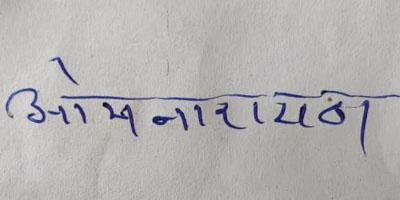 ओमनारायण